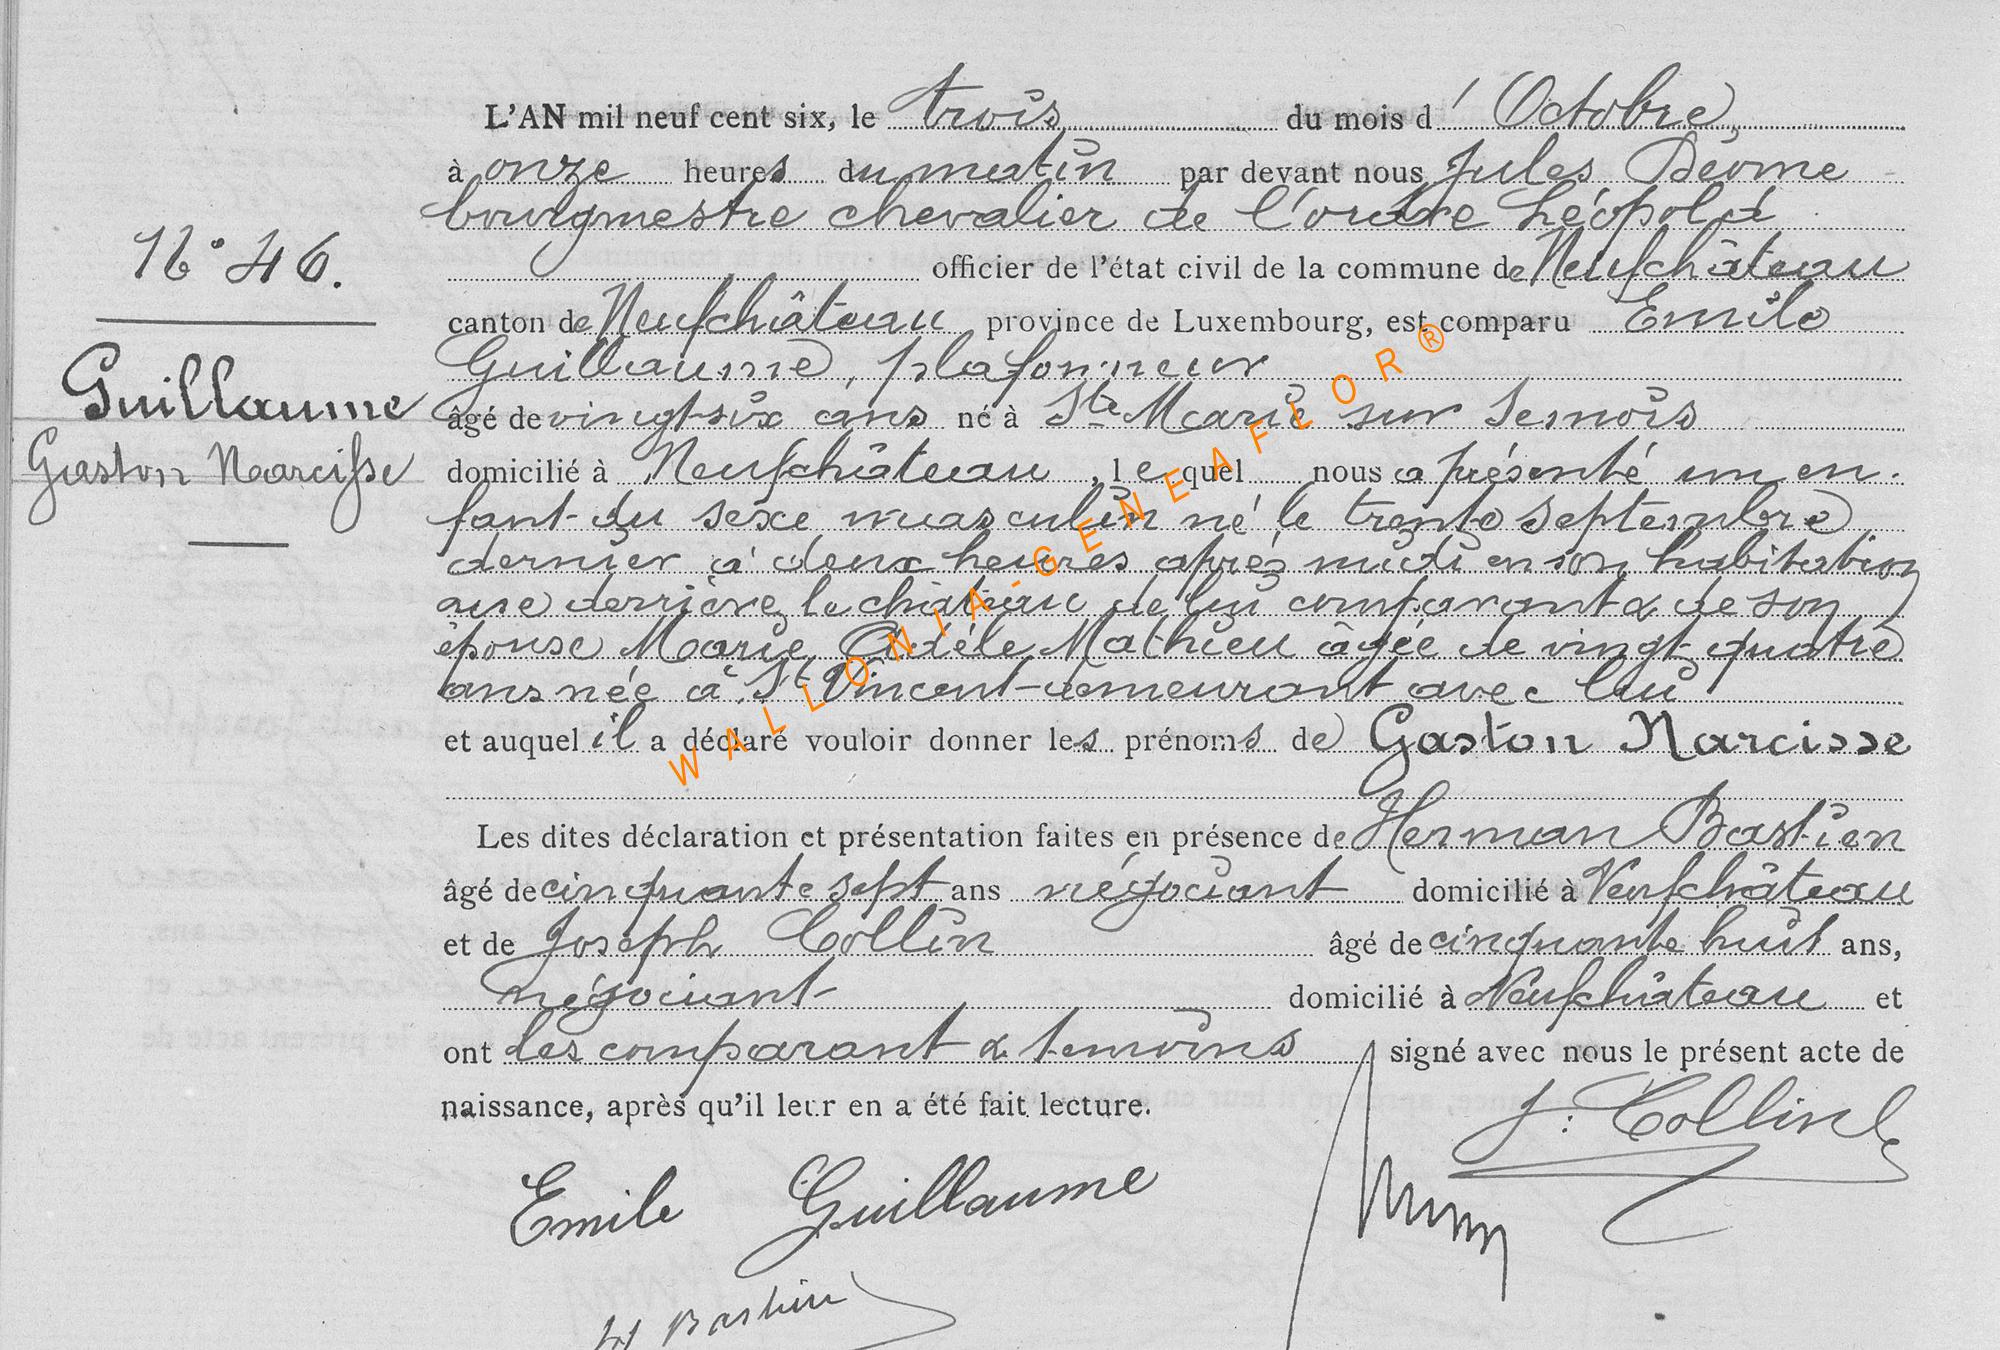 L'AN mil neuf cent six, le trois du mois d' Octobre,
à onze heures du matin par devant nous Jules
bourgmestre chevalier de l'ordre Léopold
N° 46.
officier de l'état civil de la commune de Neufchâteau
canton de Neufchâteau province de Luxembourg, est comparu Emile
Guillaume
Gaston Narcisse
Guillaume, plafonneur
âgé de vingt-six ans né à Ste Marie sur Semois
domicilié à Neufchâteau, lequel nous a présenté un en-
fant du sexe masculin né le trente septembre
dernier à deux heures après midi en son habitation
derrière le château de lui comparant & de son
épouse Marie Adèle Mathieu âgée de vingt-quatre
ans née à St Vincent demeurant avec lui
et auquel il a déclaré vouloir donner les prénoms de Gaston Narcisse
WALLONIA-GENEAFLOR®
Les dites déclaration et présentation faites en présence de Herman Bastien
âgé de cinquante sept ans négociant domicilié à Neufchâteau
et de Joseph Collin âgé de cinquante huit ans,
négociant domicilié à Neufchâteau et
ont les comparant & temoins signé avec nous le présent acte de
naissance, après qu'il leur en a été fait lecture.
J. Collin
Emile Guillaume
H Bastien